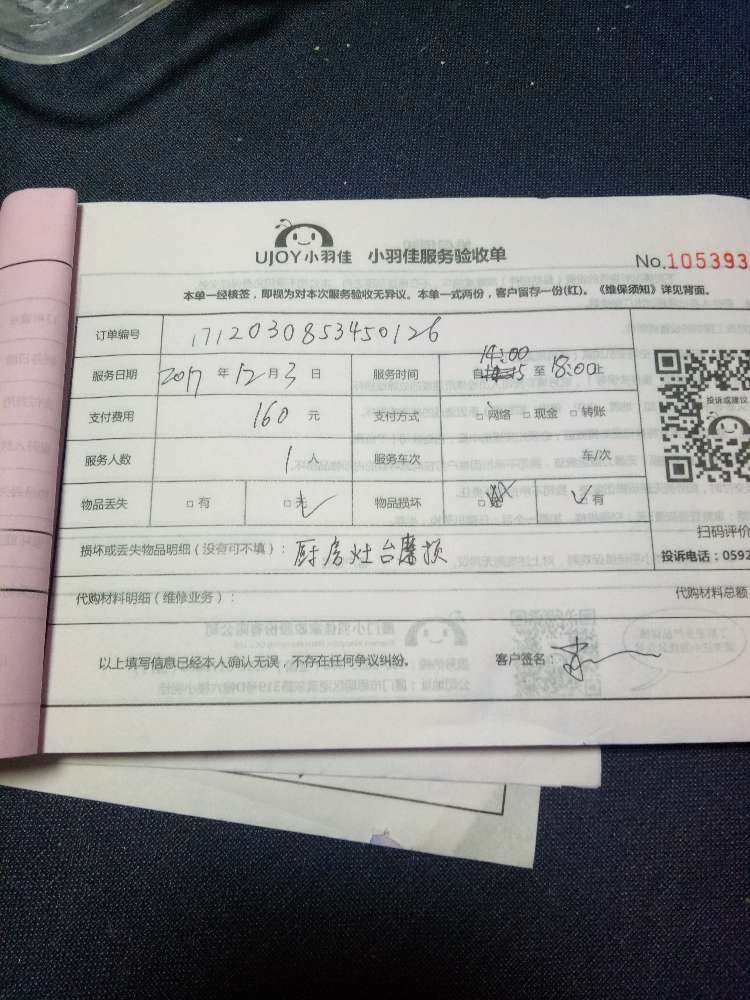 UJOY小羽佳 小羽佳服务验收单
No.105393
本单一经核签，即视为对本次服务验收无异议。本单一式两份，客户留存一份(红)。《维保须知》详见背面。
订单编号 171203085345012​6
服务日期 2017 年 12 月 3 日 服务时间 自 14:00 至 18:00 止
支付费用 160 元 支付方式 □网络 □现金 □转账
投诉或建议
服务人数 1 人 服务车次 车/次
物品丢失 □有 □无 物品损坏 □ 有
扫码评价
损坏或丢失物品明细（没有可不填）： 厨房灶台磨损
投诉电话：0592
代购材料明细（维修业务）： 代购材料总额
以上填写信息已经本人确认无误，不存在任何争议纠纷。 客户签名：